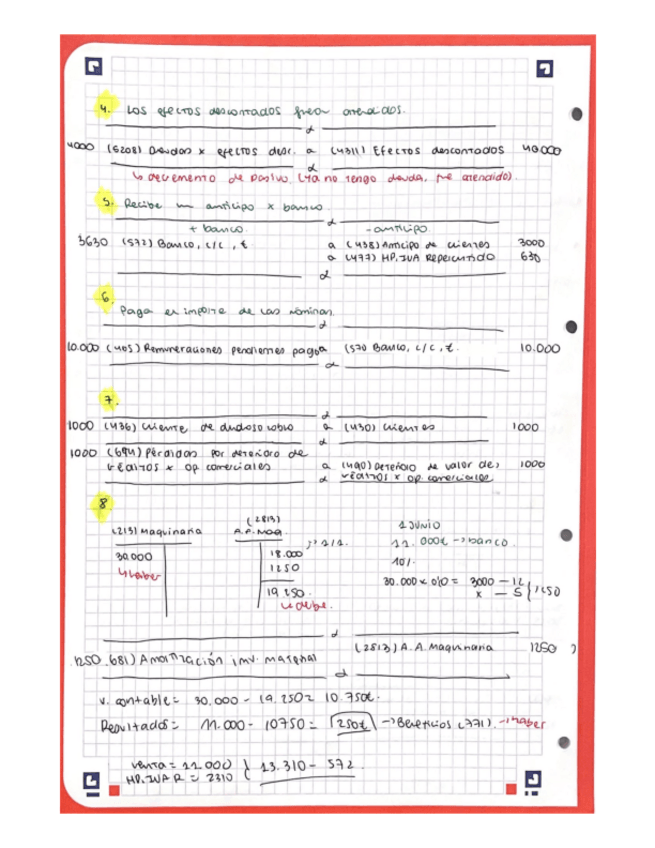 4. Los efectos descontados fueron atendidos.
4000 (5208) Deudas x efectos desc. a (4311) Efectos descontados 40000
↳ decremento de pasivo (ya no tengo deuda, fue atendido).
5. Recibe un anticipo x banco.
+ banco - anticipo
3630 (572) Banco, c/c, € a (438) Anticipo de clientes 3000
a (477) HP. IVA Repercutido 630
6.
Paga el importe de las nóminas.
10.000 (465) Remuneraciones pendientes pago a (570 Banco, c/c, €. 10.000
7.
1000 (436) Cliente de dudoso cobro a (430) Clientes 1000
1000 (694) Pérdidas por deterioro de
créditos x op comerciales a (490) Deterioro de valor de 1000
créditos x op. comerciales
8
(2813)
(213) Maquinaria A.A. Maq.
1 JUNIO
30.000 18.000 → 1/1. 11.000€ → banco.
↳ haber 1250 10%
19.250. 30.000 x 0'10 = 3000 - 12
↳ debe. x - 5 } 1250
(2813) A.A. Maquinaria 1250
1250 681) Amortización inv. material
v. contable = 30.000 - 19.250 = 10.750€.
Resultado = 11.000 - 10750 = 250€ → Beneficios (771). → haber
venta = 11.000 } 13.310 - 572.
HP. IVA R = 2310